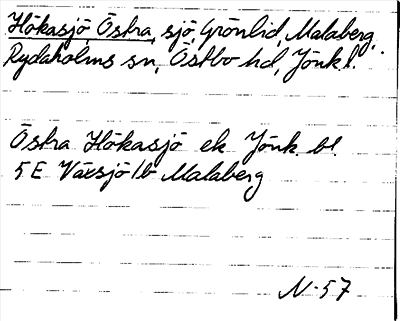 Hökasjö, Östra, sjö, Grönlid, Malaberg,
Rydaholms sn, Östbo hd, Jönk. l.
Östra Hökasjö ek Jönk. bl.
5 E Växsjö/b Malaberg
N-57